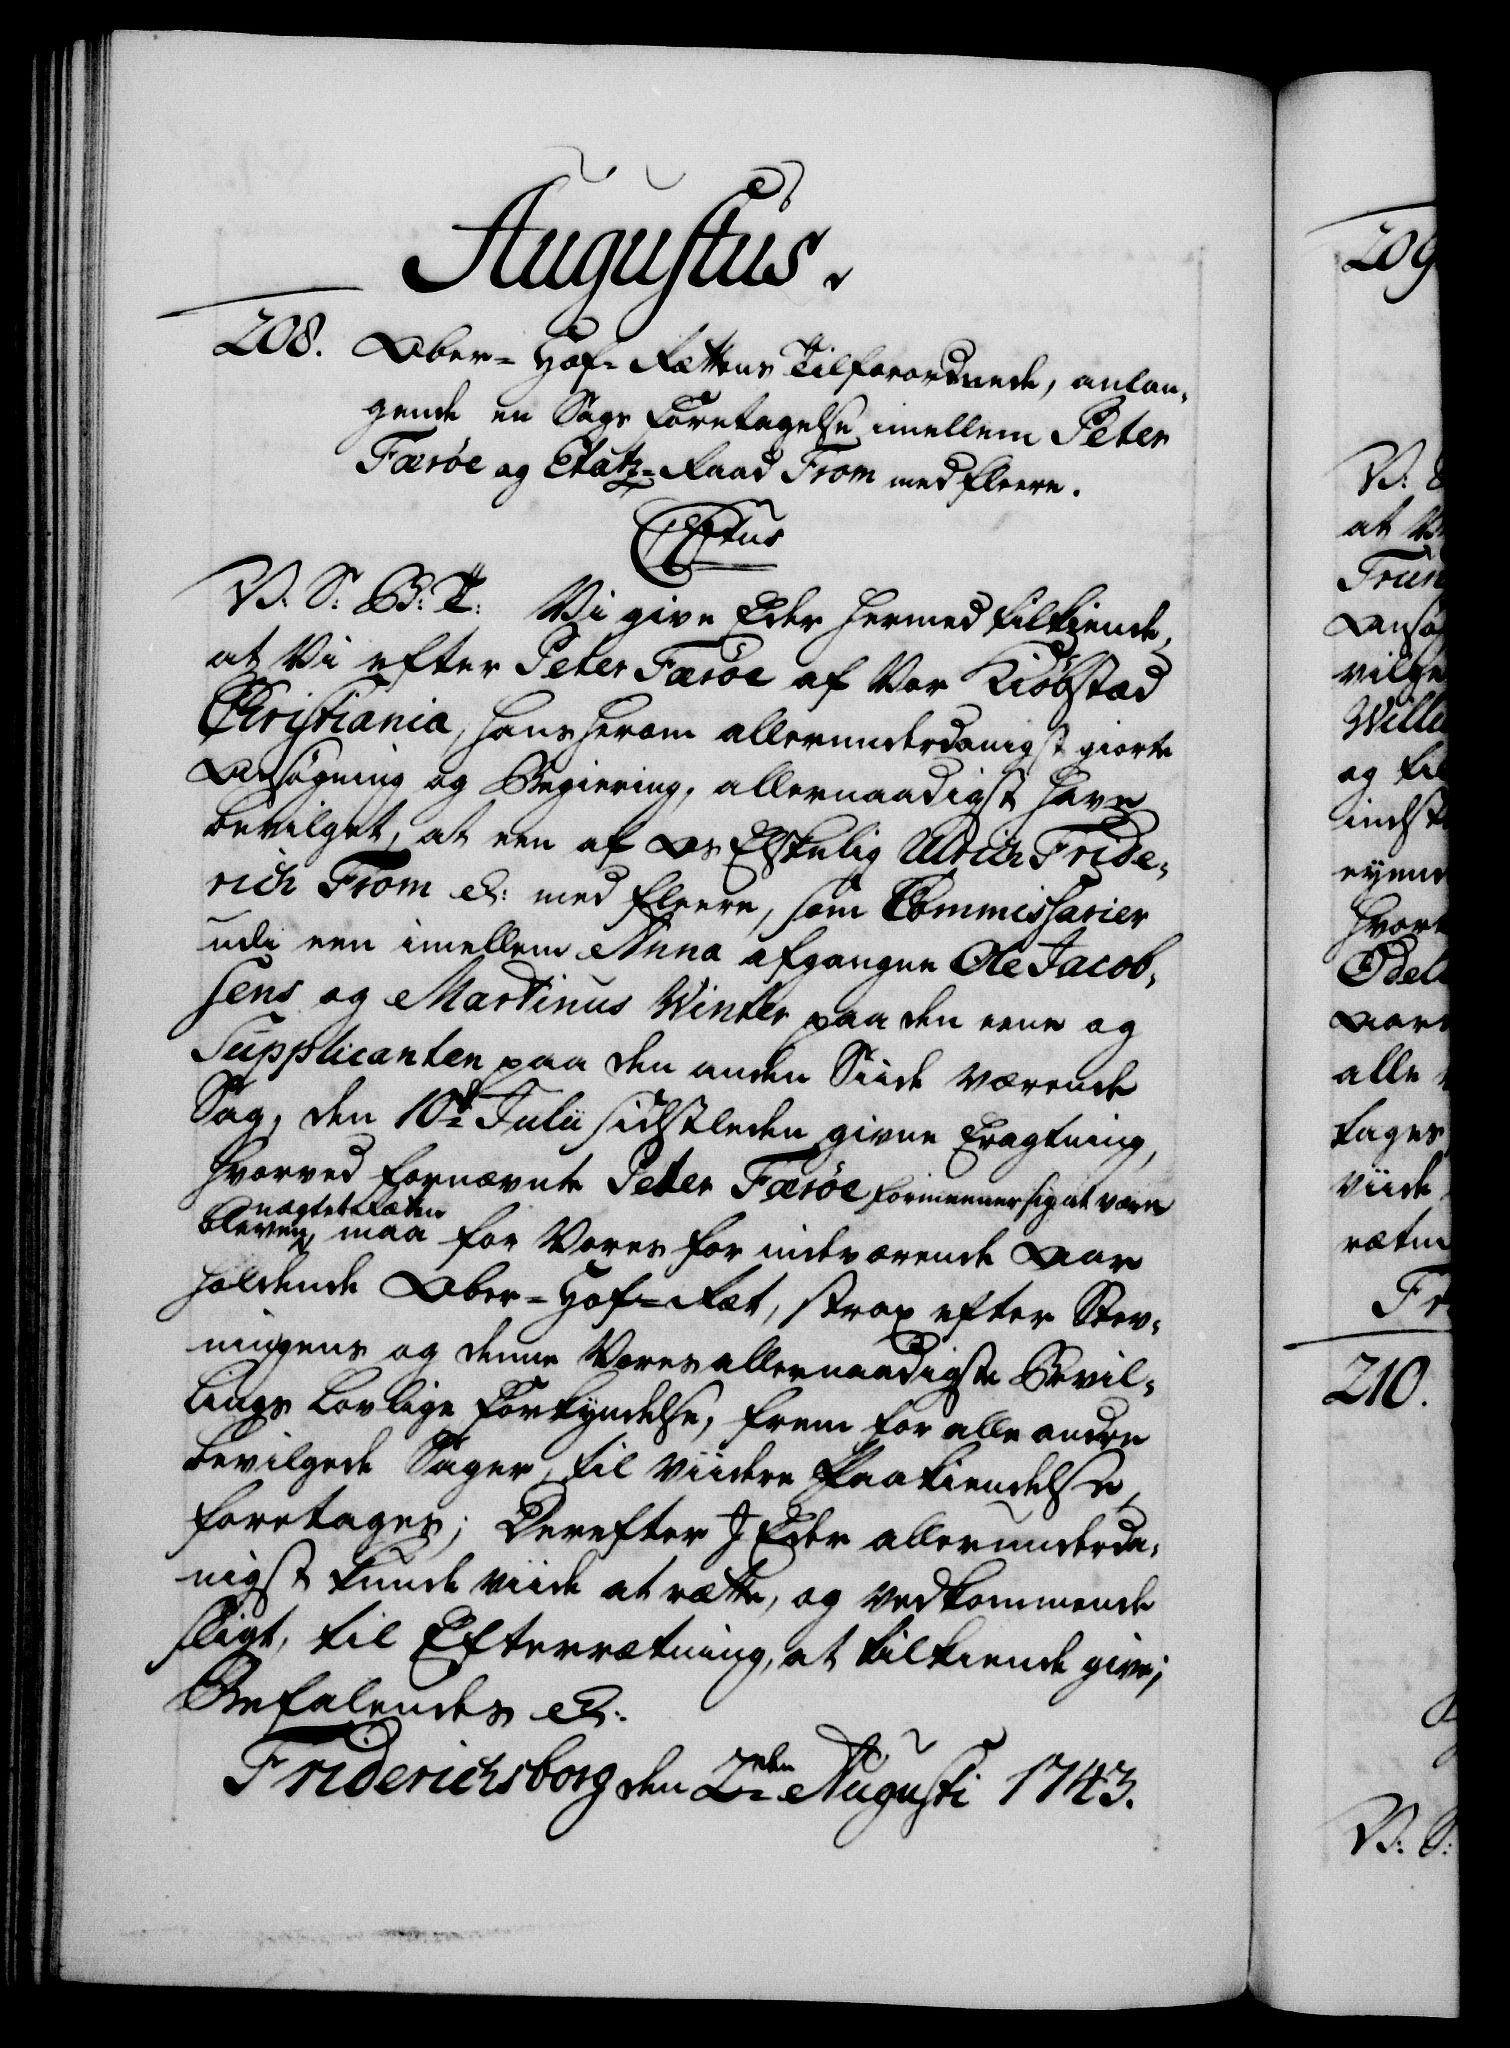 Augustus.
208. Ober-Hof-Rættens Tilforordnede, anlan-
gende en Sags Foretagelse imellem Peter
Færøe og Etatz-Raad From med fleere.
CPstus
V. S. G. T. Vi give Eder hermed tilkiende,
at Vi efter Peter Færøe af Vor Kiøbstad
Christiania, hans herom allerunderdanigst giorte
Ansøgning og Begiering, allernaadigst have
bevilget, at een af Os Elskelig Ulrich Fride-
rich From &: med fleere, som Commissarier
udi een imellem Anna afgangne Ole Jacob-
sens og Martinus Winter paa den eene og
Supplicanten paa den anden Siide værende
Sag, den 10de Julii sidstleden givne Eragtning,
hvorved fornævnte Peter Færøe formeener sig at være
nægtet Rætten
bleven, maa for Vores for indeværende Aar
holdende Ober-Hof-Ræt, strax efter Stev-
ningens og denne Vores allernaadigste Bevil-
lings lovlige Forkyndelse, frem for alle andre
bevilgede Sager, til viidere Paakiendelse,
foretages; Derefter I Eder allerunderda-
nigst kunde viide at rætte, og vedkommende
sligt, til Efterrætning, at tilkiende give;
Befalendes &:
Friderichsborg den 2den Augusti 1743.
209
V:
at
Willu
og til
indst
hvor
Odel
alle
tages
viide
Fr
210.
V: S: